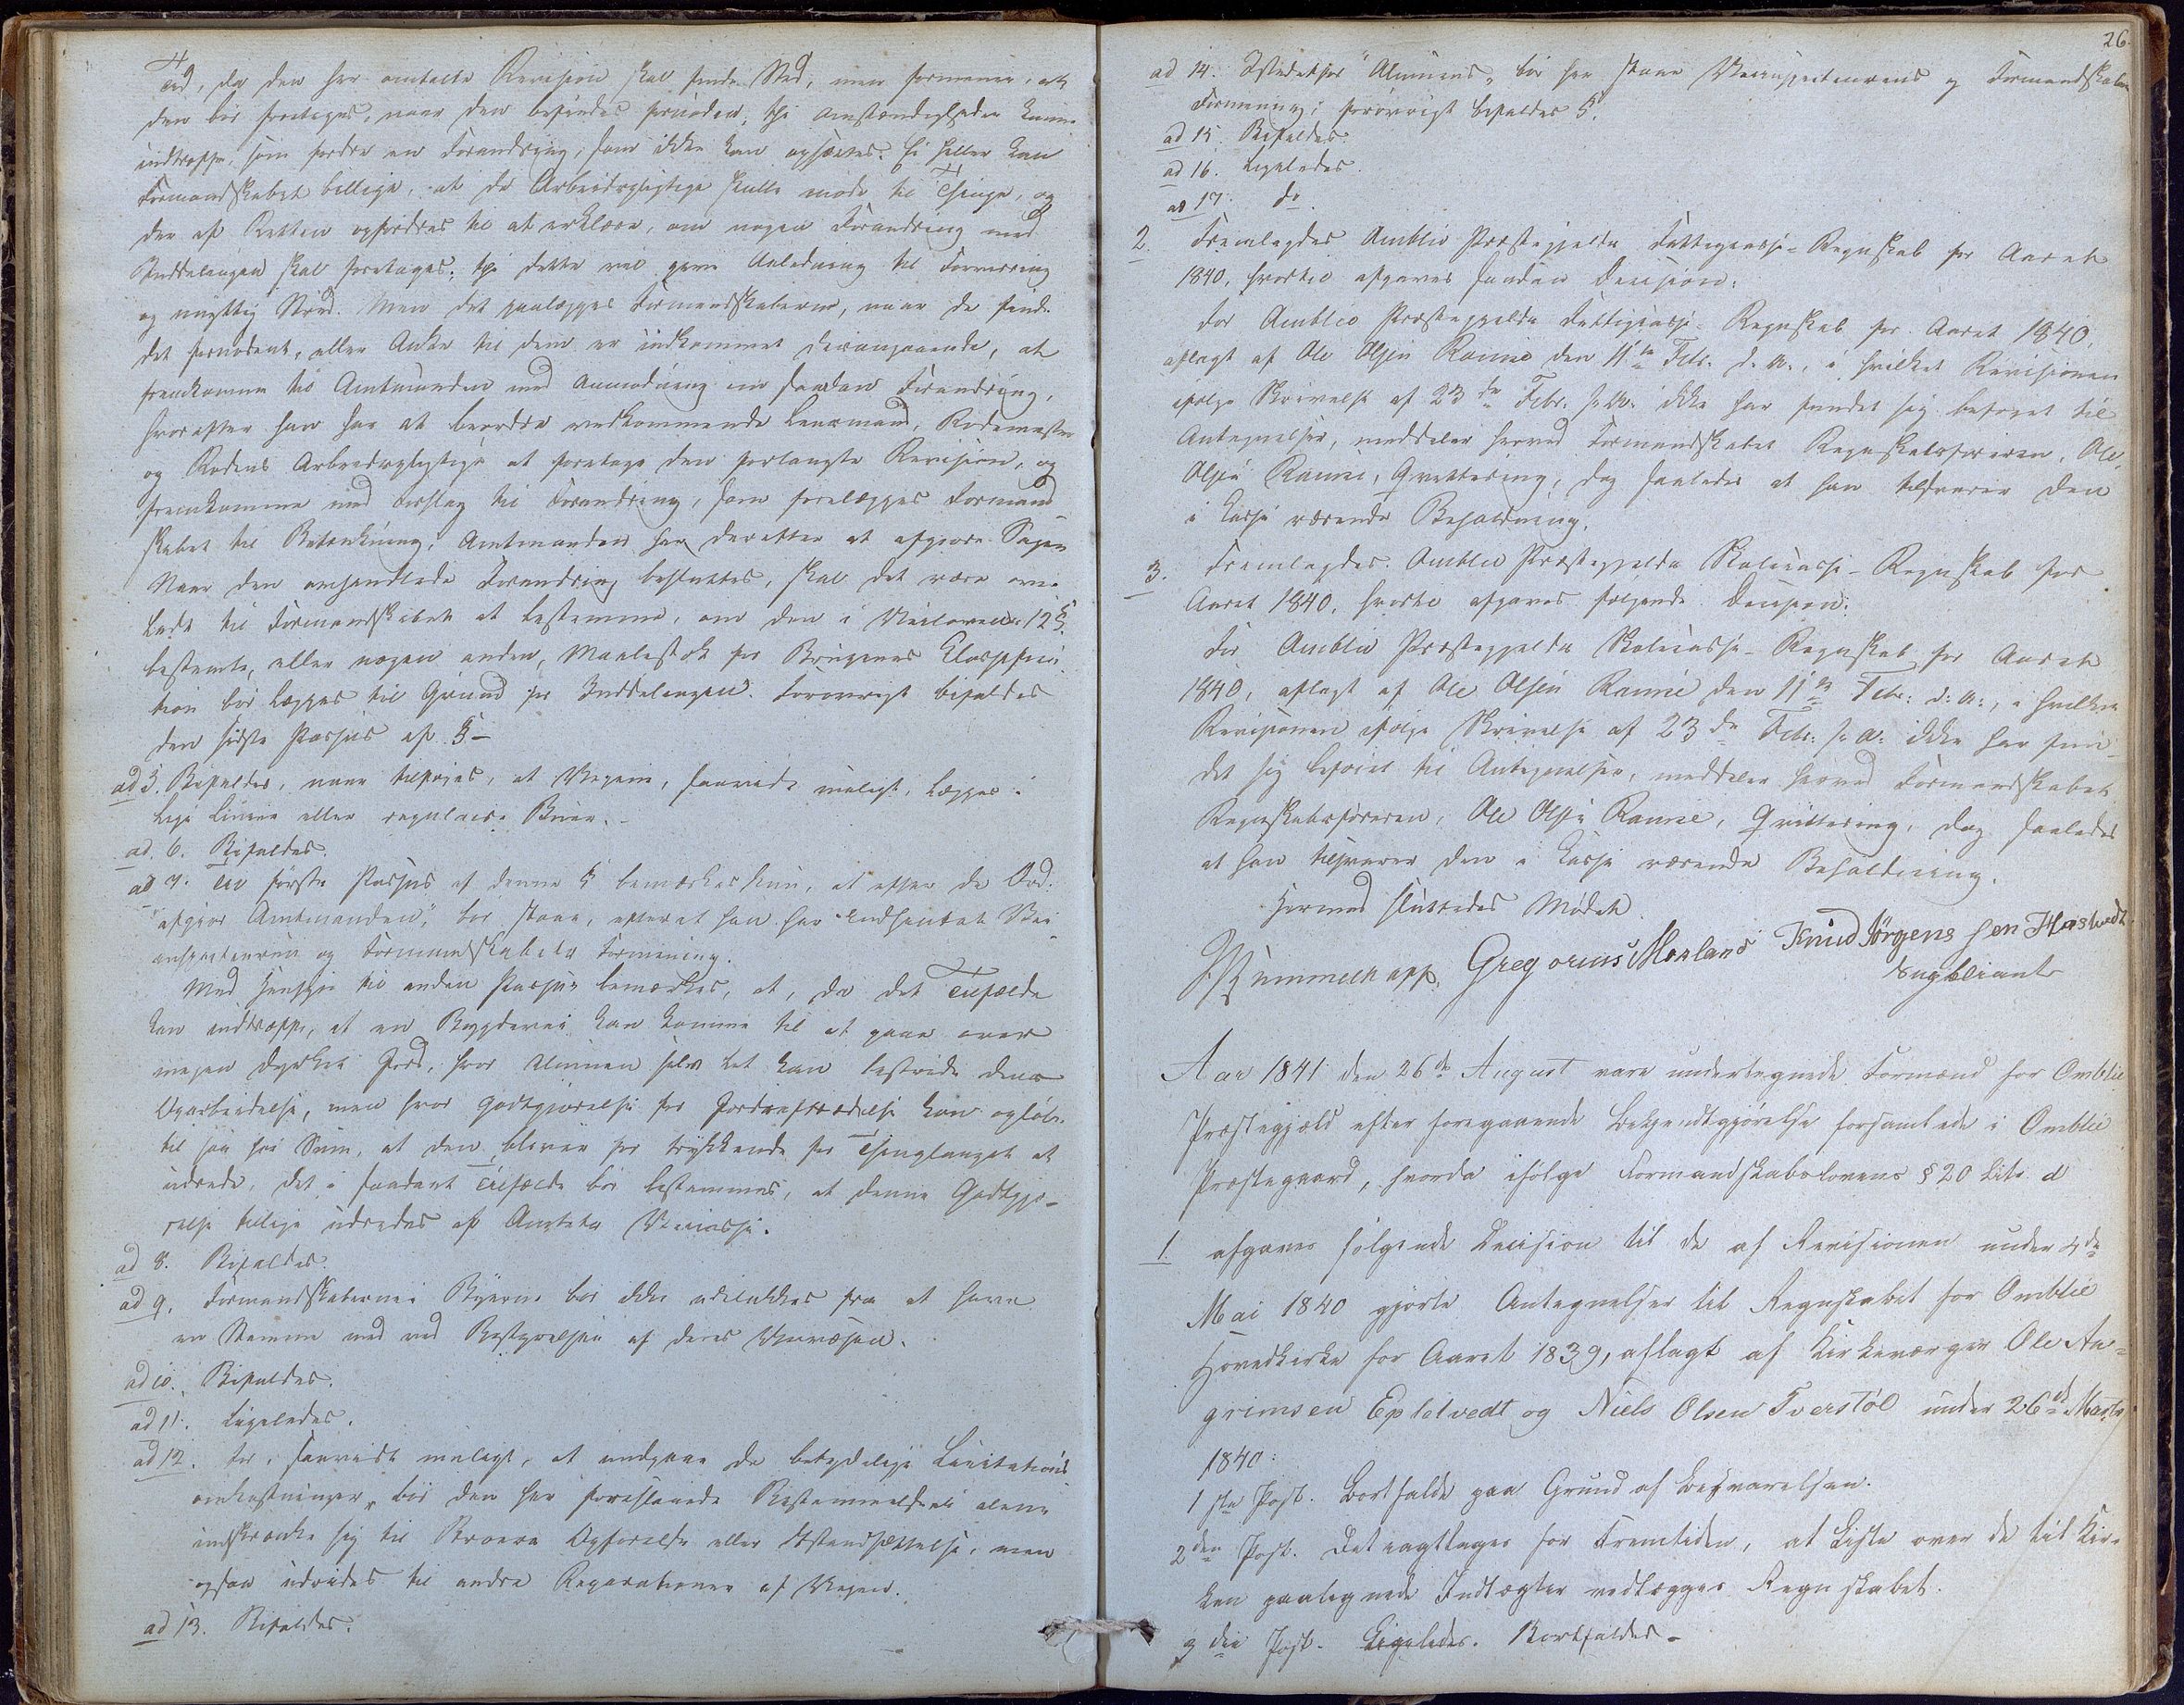 Tid, da den her omtalte Revision skal finde Sted, men formener, at
den bør foretages, naar den befindes fornøden, thi Omstændigheder kunne
indtræffe, som fordre en Forandring, som ikke kan opsættes. Ei heller kan
Formandskabet billige, at de Arbeidspligtige skulle møde til Thinge, og
der af Retten opfordres til at erklære, om nogen Forandring med
Inddelingen skal foretages; thi dette vil give Anledning til Forvirring
og unyttig Strid. Men det paalægges Formandskaberne, naar de finde
det fornødent, eller Anke til dem er indkommet desangaaende, at
fremkomme til Amtmanden med Anmodning om saadan Forandring,
hvorefter han har at beordre vedkommende Lensmand, Rodemester
og Rodens Arbeidspligtige at foretage den forlangte Revision, og
fremkomme med Forslag til Forandring, som forelægges Formand-
skabet til Betænkning. Amtmanden har derefter at afgjøre Sagen
Naar den omhandlede Forandring besluttes, skal det være over-
ladt til Formandskabet at bestemme, om den i Veilovens 12 §.
bestemte, eller nogen anden, Maalestok for Brugenes Classifica-
tion bør lægges til Grund for Inddelingen. Forøvrigt bifaldes
den sidste Passus af §-
ad 3. Bifaldes, naar tilføies, at Veiene, saavidt muligt, lægges i
lige Linie eller regulaire Buer.-
ad. 6. Bifaldes.
ad 7. Til første Passus af denne § bemærkes kun, at efter de Ord:
"afgjør Amtmanden", bør staae, efterat han har indhentet Vei-
inspecteurens og Formandskabets Formening.
Med Hensyn til anden Passus bemærkes, at, da det Tilfælde
kan indtræffe, at en Bygdevei kan komme til at gaae over
megen dyrket Jord, hvor Almuen selv let kan bestride dens
Oparbeidelse, men hvor Godtgjørelse for Jordafstaaelse kan opløbe
til saa høi Sum, at den bliver for trykkende for Thinglauget at
udrede, det i saadant Tilfælde bør bestemmes, at denne Godtgjø-
relse tillige udredes af Amtets Veicasse.
ad 8. Bifaldes.
ad 9. Formandskaberne i Byerne bør ikke udelukkes fra at have
en Stemme med ved Bestyrelsen af deres Veivæsen.
ad 10. Bifaldes.
ad 11. Ligeledes.
ad 12. For, saavidt muligt, at undgaae de betydelige Licitations
omkostninger, bør den her foreslaaede Bestemmelse ei alene
indskrænke sig til Broers Opførelse eller Istandsættelse, men
ogsaa udvides til andre Reparationer af Veiene.
ad 13. Bifaldes.
26.
ad 14. Istedetfor "Almuens" bør her staae Veiinspecteurens og Formandskabets
Formening; forøvrigt bifaldes §.
ad 15. Bifaldes.
ad 16. Ligeledes.
ad 17. do.
2. Fremlagdes Omblie Præstegjelds Fattigcasse-Regnskab for Aaret
1840, hvortil afgaves saadan Decision:
For Omblie Præstegjelds Fattigcasse-Regnskab for Aaret 1840,
aflagt af Ole Olsen Rannie den 11te Febr. d. A., i hvilket Revisionen
ifølge Skrivelse af 23de Febr. s. A. ikke har fundet sig beføiet til
Antegnelser, meddeler herved Formandskabet Regnskabsføreren, Ole
Olsen Rannie, Qvittering, dog saaledes at han tilsvarer den
i Cassa værende Beholdning.
3. Fremlagdes Omblie Præstegjelds Skolecasse-Regnskab for
Aaret 1840, hvortil afgaves følgende Decision:
For Omblie Præstegjelds Skolecasse-Regnskab for Aaret
1840, aflagt af Ole Olsen Rannie den 11te Febr: d: A:, i hvilket
Revisionen ifølge Skrivelse af 23de Febr. s. A: ikke har fun-
det sig beføiet til Antegnelser, meddeler herved Formandskabet
Regnskabsføreren, Ole Olsen Rannie, Qvittering, dog saaledes
at han tilsvarer den i Cassa værende Beholdning.
Hermed sluttedes Mødet
Gregorius Morland Knud Jörgens sen Hasteedt
Supliant
Aar 1841 den 26de August vare undertegnede Formænd for Omblie
Præstegjæld efter foregaaende Bekjendtgjørelse forsamlede i Omblie
Præstegaard, hvorda ifølge Formandskabslovens § 20 Litr d
1. afgaves følgende Decision til de af Revisionen under 4de
Mai 1840 gjorte Antegnelser til Regnskabet for Omblie
Hovedkirke for Aaret 1839, aflagt af Kirkeværger Ole An-
grimsen Epletvedt og Niels Olsen Tverstøl under 26de Marts
1840:
1ste Post. Bortfalde paa Grund af Besvarelsen.
2den Post. Det iagttages for Fremtiden, at Liste over de til Kir-
ken paalignede Indtægter vedlægges Regnskabet.
3die Post. Ligeledes. Bortfaldes-